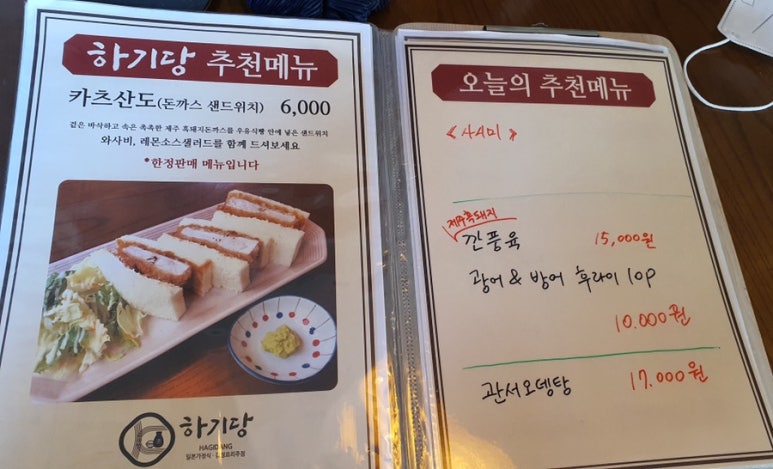 하기당 추천메뉴
카츠산도(돈까스 샌드위치) 6,000
겉은 바삭하고 속은 촉촉한 제주 흑돼지돈까스를 우유식빵 안에 넣은 샌드위치
와사비, 레몬소스샐러드를 함께 드셔보세요
*한정판매 메뉴입니다
하기당
HAGIDANG
오늘의 추천메뉴
《 사시미 》
제주흑돼지
깐풍육 15,000원
광어 & 방어 후라이 10p
10.000원
관서오뎅탕 17.000원